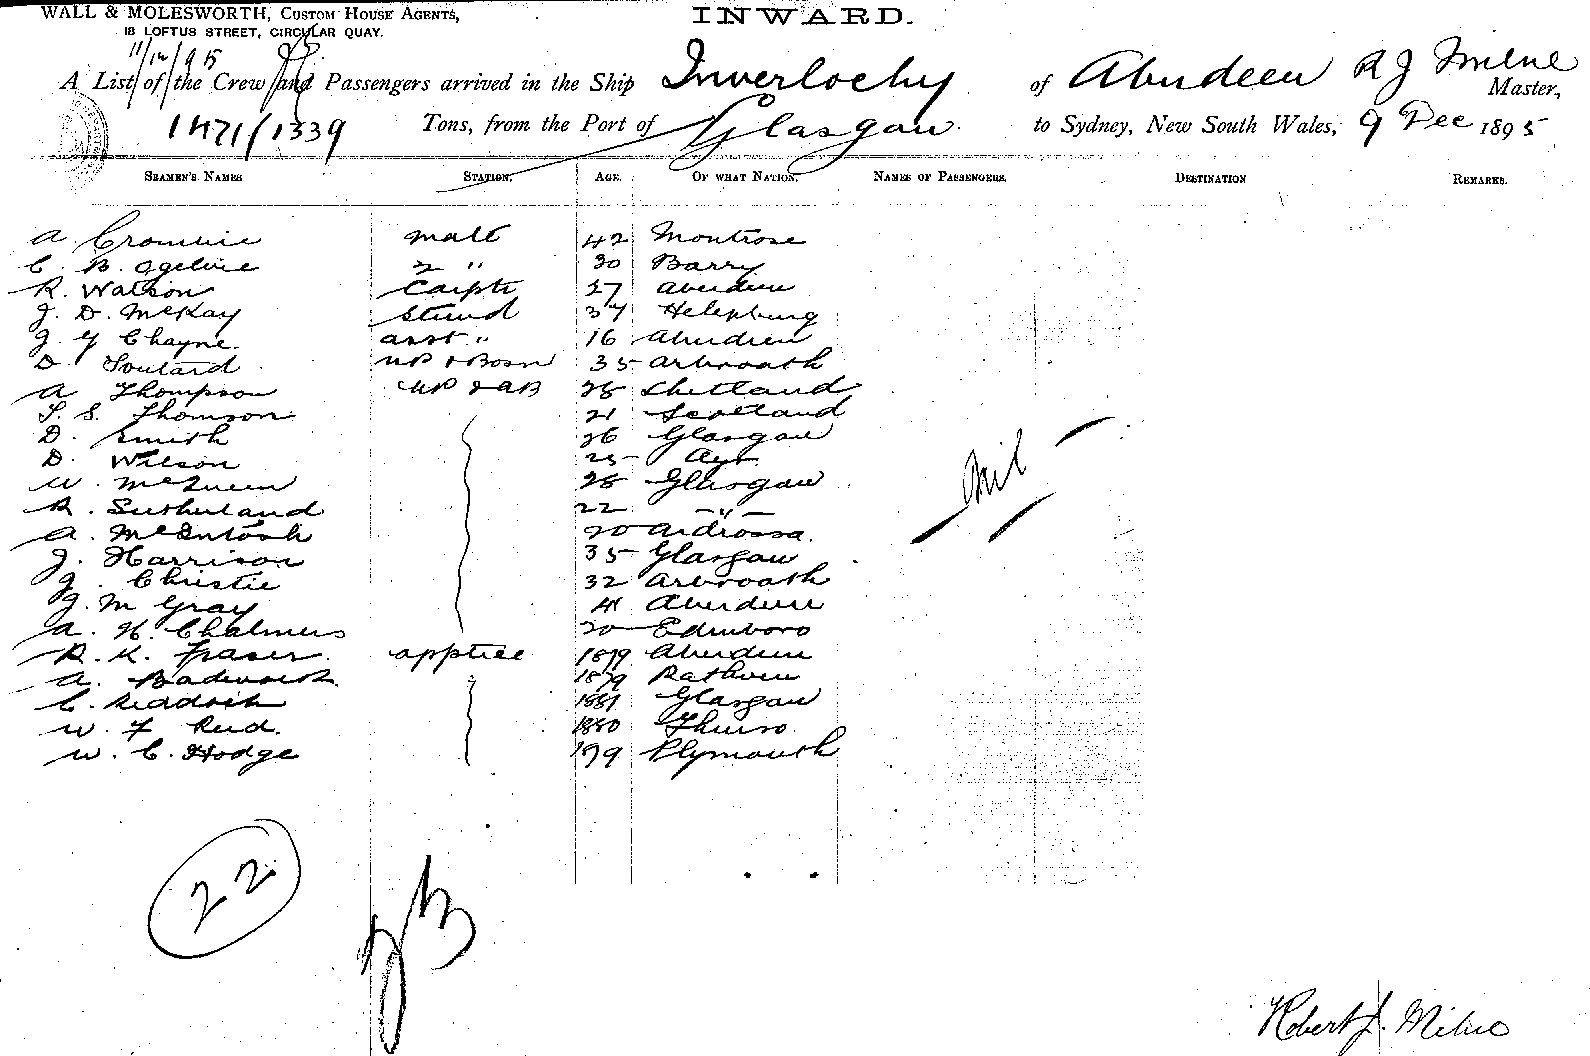 WALL & MOLESWORTH, CUSTOM HOUSE AGENTS,
18 LOFTUS STREET, CIRCULAR QUAY.
INWARD.
11/12/95
A List of the Crew and Passengers arrived in the Ship Inverlochy of Aberdeen R J Milne Master,
1471/1339 Tons, from the Port of Glasgow to Sydney, New South Wales, 9 Dec 1895
SEAMEN'S NAMES STATION. AGE. OF WHAT NATION. NAMES OF PASSENGERS. DESTINATION REMARKS.
A Crombie mate 42 Montrose
C. B. Ogilvie 2 " 30 Barry
R. Watson Carptr 27 Aberdeen
J. D. McKay Stewd 37 Helensburg
J. Y Chayne. asst " 16 Aberdeen
D. Soutard UP & Bosn 35 Arbroath
A Thompson UP & AB 28 Shetland
T. S. Thomson 21 Scotland
D. Smith 26 Glasgow
D. Wilson 25 Ayr
W. McQueen 28 Glasgow
R. Sutherland 22 — " —
A. McIntosh 20 Ardrossa.
J. Harrison 35 Glasgow
J. Christie 32 Arbroath
J. M Gray Aberdeen
A. H. Chalmers 20 Edinboro
R. K. Fraser apptice 1879 Aberdeen
A. 1879 Rathven
C. Reddoch 1881 Glasgow
W. F Reid. 1880 Thurso
W. C. Hodge 1879 Plymouth
Nil
22
Robert J. Milne